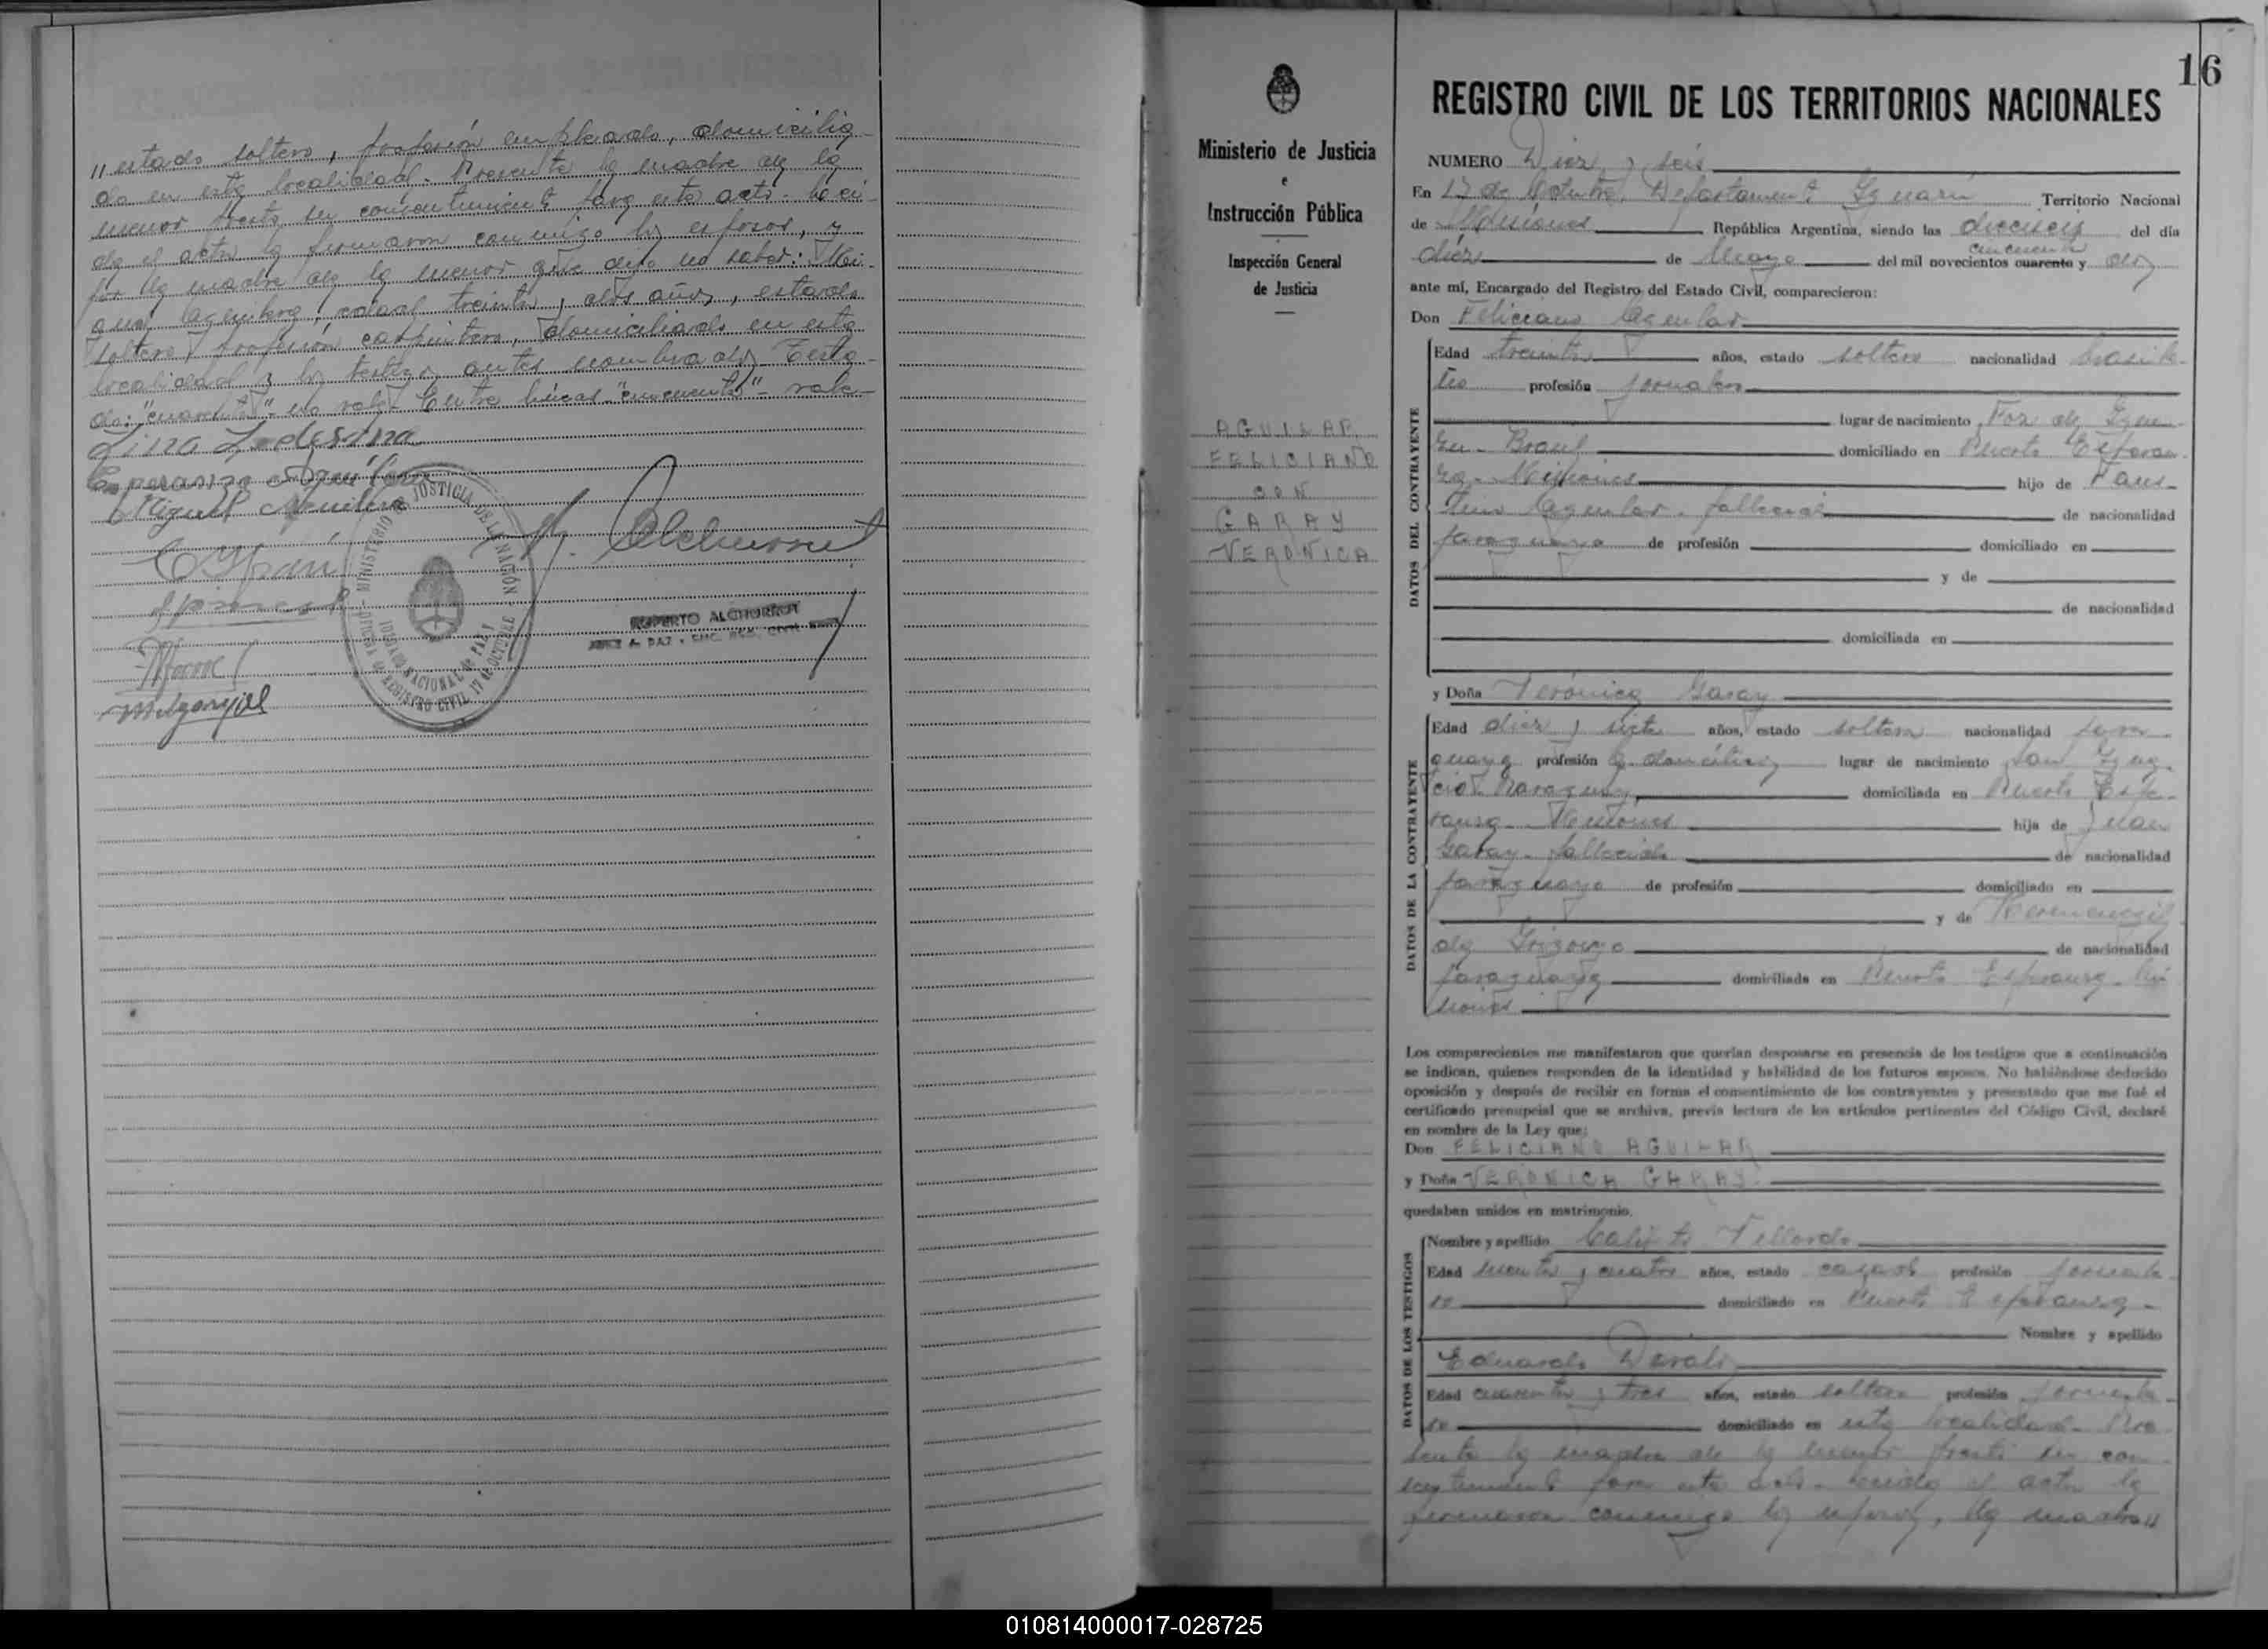 " estado soltero, profesión empleado, domicilia-
do en esta localidad. Presente la madre de la
menor presta su consentimiento para este acto. Leí-
da el acta la firmaron conmigo los esposos, y
por la madre de la menor que dijo no saber: Mi-
guel Aguilera, edad treinta y dos años, estado
soltero, profesión carpintero, domiciliado en esta
localidad y los testigos antes nombrados. Testa-
do: "cuarenta" - no vale. Entre líneas "cincuenta" - vale-
Lino Ledesma
Esperanza
Miguel Aguilera
MINISTERIO DE JUSTICIA DE LA NACIÓN
JUZGADO NACIONAL de PAZ
OFICINA de REGISTRO CIVIL 17 de OCTUBRE
R. Alchurrut
RUPERTO ALCHURRUT
JUEZ de PAZ - ENC. REG. CIVIL
Ministerio de Justicia
e
Instrucción Pública
Inspección General
de Justicia
AGUILAR
FELICIANO
CON
GARAY
VERONICA
16
REGISTRO CIVIL DE LOS TERRITORIOS NACIONALES
NUMERO Diez y seis
En 17 de Octubre, Departamento Iguazú Territorio Nacional
de Misiones República Argentina, siendo las dieciseis del día
cincuenta
diéz de Mayo del mil novecientos cuarenta y dos
ante mí, Encargado del Registro del Estado Civil, comparecieron:
Don Feliciano Aguilar
DATOS DEL CONTRAYENTE
Edad treinta años, estado soltero nacionalidad brasile-
ño profesión jornalero
lugar de nacimiento Foz de Igua-
zu - Brasil domiciliado en Puerto Esperan-
za - Misiones hijo de Faus-
tino Aguilar - fallecido de nacionalidad
paraguaya de profesión domiciliado en
y de
de nacionalidad
domiciliada en
y Doña Verónica Garay
DATOS DE LA CONTRAYENTE
Edad diez y siete años, estado soltera nacionalidad para-
guaya profesión q. domésticos lugar de nacimiento San Igna-
cio - Paraguay domiciliada en Puerto Espe-
ranza - Misiones hija de Juan
Garay - fallecido de nacionalidad
paraguaya de profesión domiciliado en
y de
de nacionalidad
paraguaya domiciliada en Puerto Esperanza - Mi-
siones
Los comparecientes me manifestaron que querían desposarse en presencia de los testigos que a continuación
se indican, quienes responden de la identidad y habilidad de los futuros esposos. No habiéndose deducido
oposición y después de recibir en forma el consentimiento de los contrayentes y presentado que me fué el
certificado prenupcial que se archiva, previa lectura de los artículos pertinentes del Código Civil, declaré
en nombre de la Ley que:
Don FELICIANO AGUILAR
y Doña VERONICA GARAY
quedaban unidos en matrimonio.
DATOS DE LOS TESTIGOS
Nombre y apellido Calixto
Edad y cuatro años, estado casado profesión jornale-
ro domiciliado en Puerto Esperanza -
Nombre y apellido
Eduardo
Edad cuarenta y tres años, estado soltero profesión jornale-
ro domiciliado en esta localidad - Pre-
sente la madre de la menor presta su con-
sentimiento para este acto - Leída el acta la
firmaron conmigo los esposos, la madre "
010814000017-028725